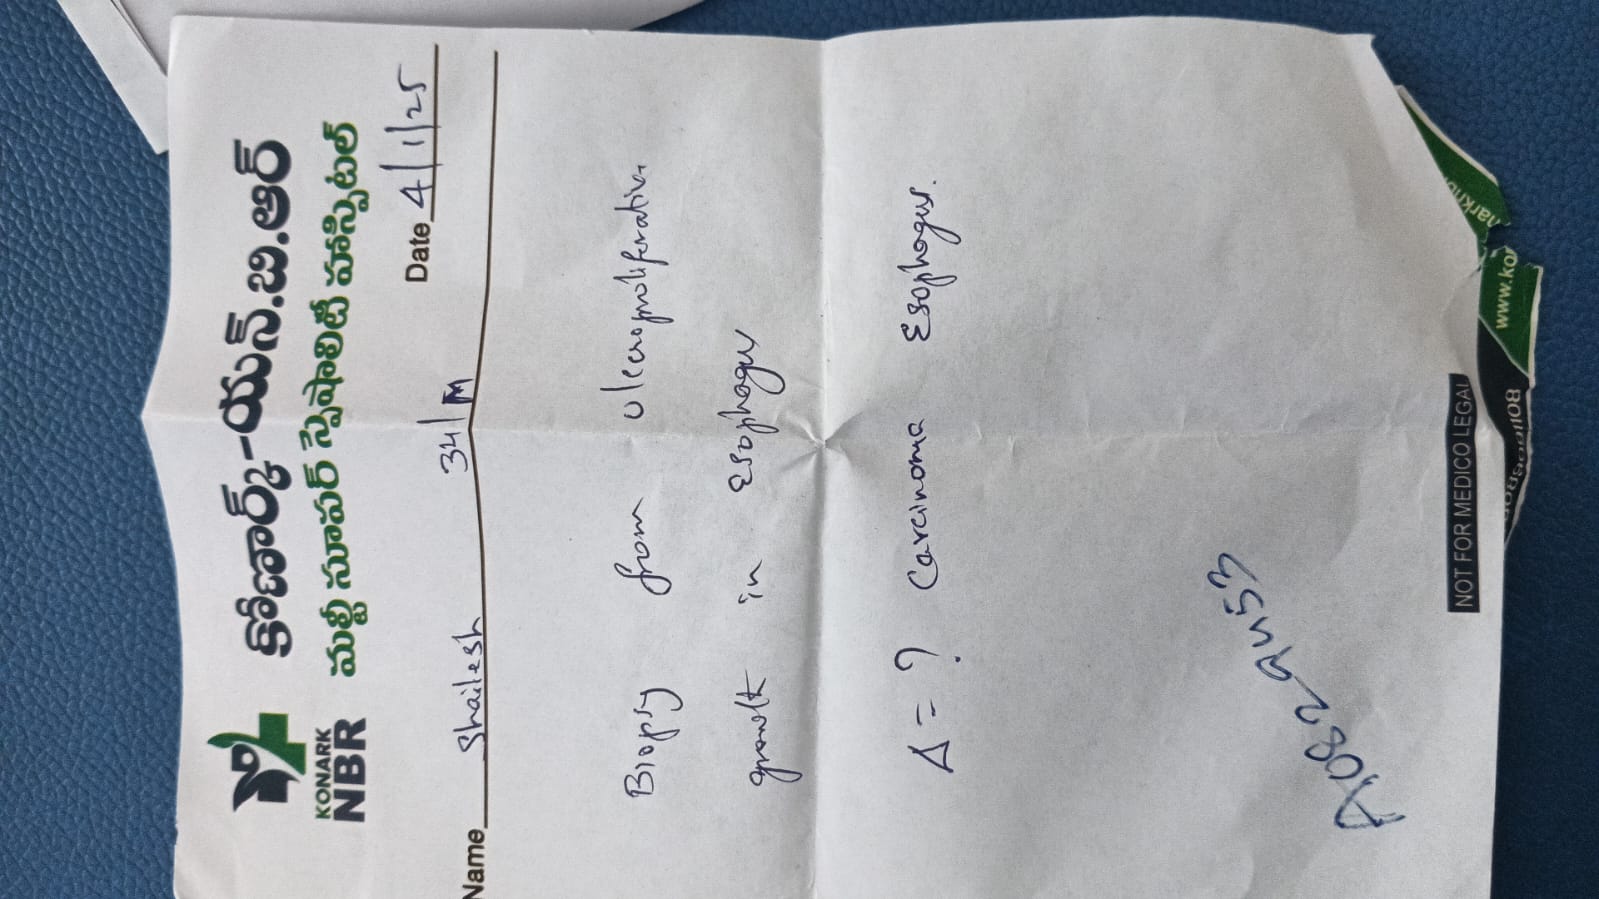 కోణార్క్-యన్.బి.ఆర్
మల్టీ సూపర్ స్పెషాలిటీ హాస్పిటల్
KONARK
NBR
Date 4/1/25
Name Shailesh 34/M
Biopsy from ulceroproliferative
growth in Esophagus
Δ = ? Carcinoma Esophagus.
NOT FOR MEDICO LEGAL
www.ko